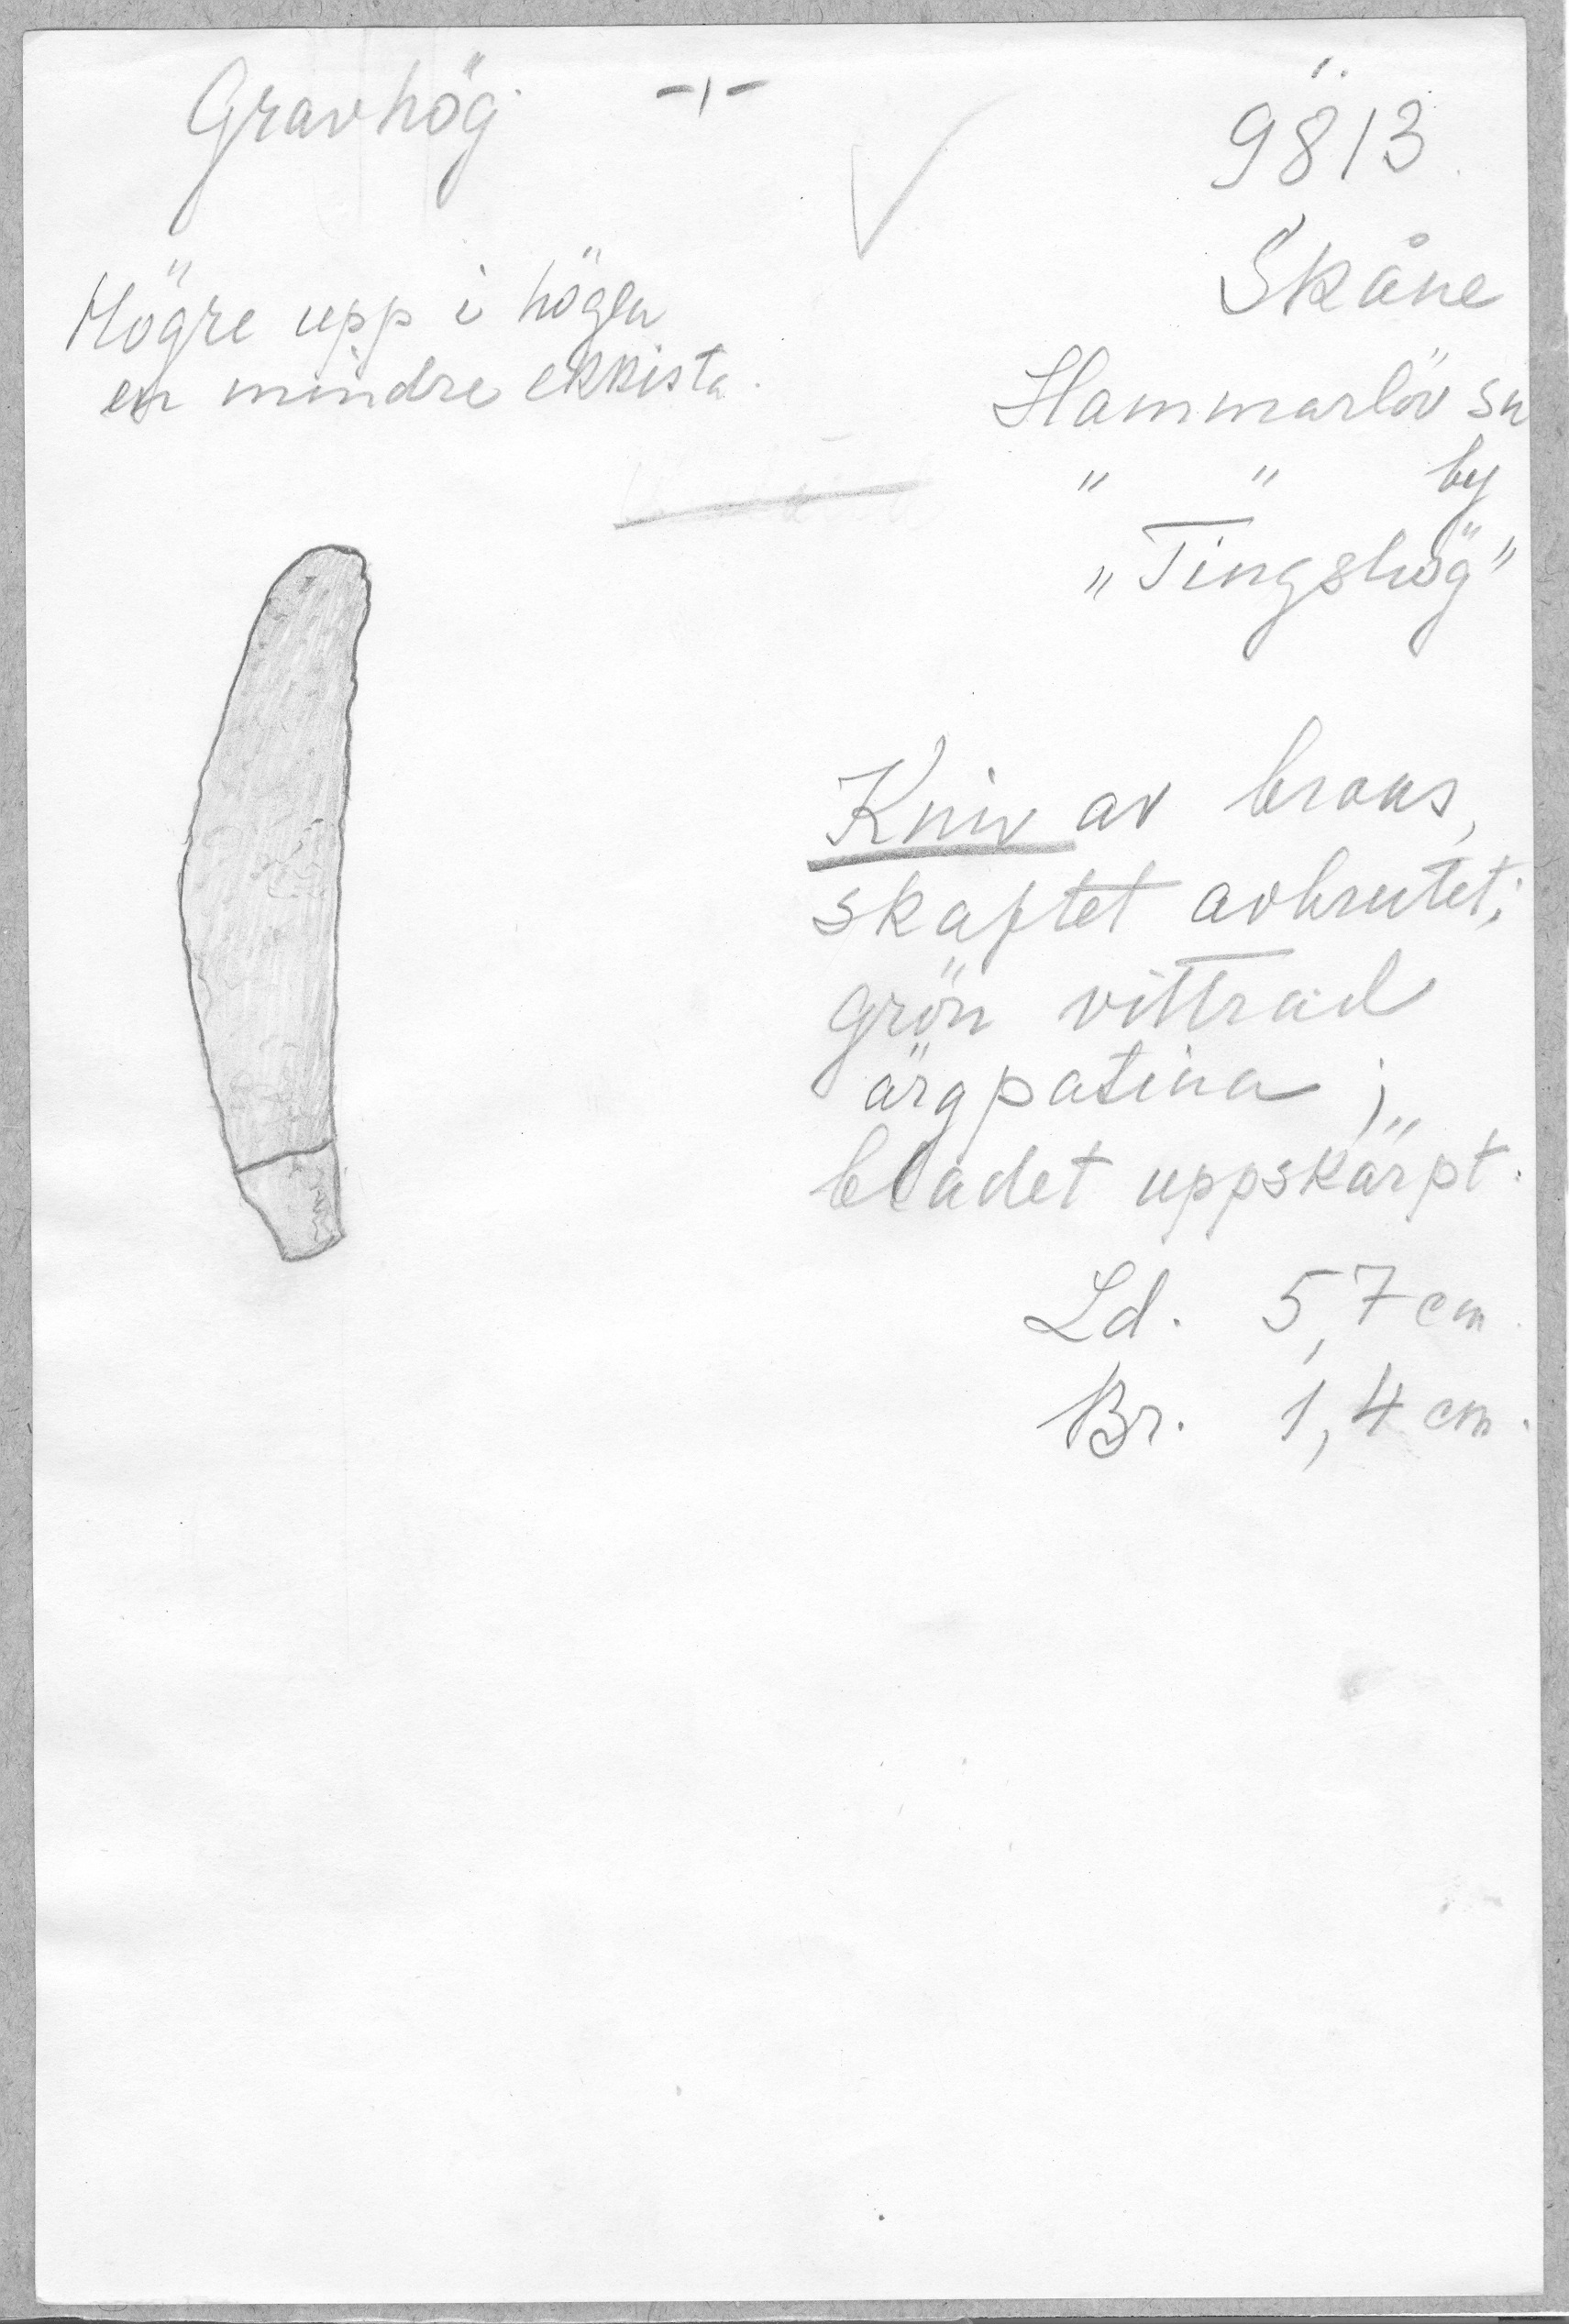 Gravhög -,-
9813.
Skåne
Högre upp i högen
en mindre ekkista.
Hammarlöv sn
" " by
"Tingshög"
Kniv av brons,
skaftet avbrutet;
grön vittrad
ärgpatina;
bladet uppskärpt.
Ld. 5,7 cm.
Br. 1,4 cm.